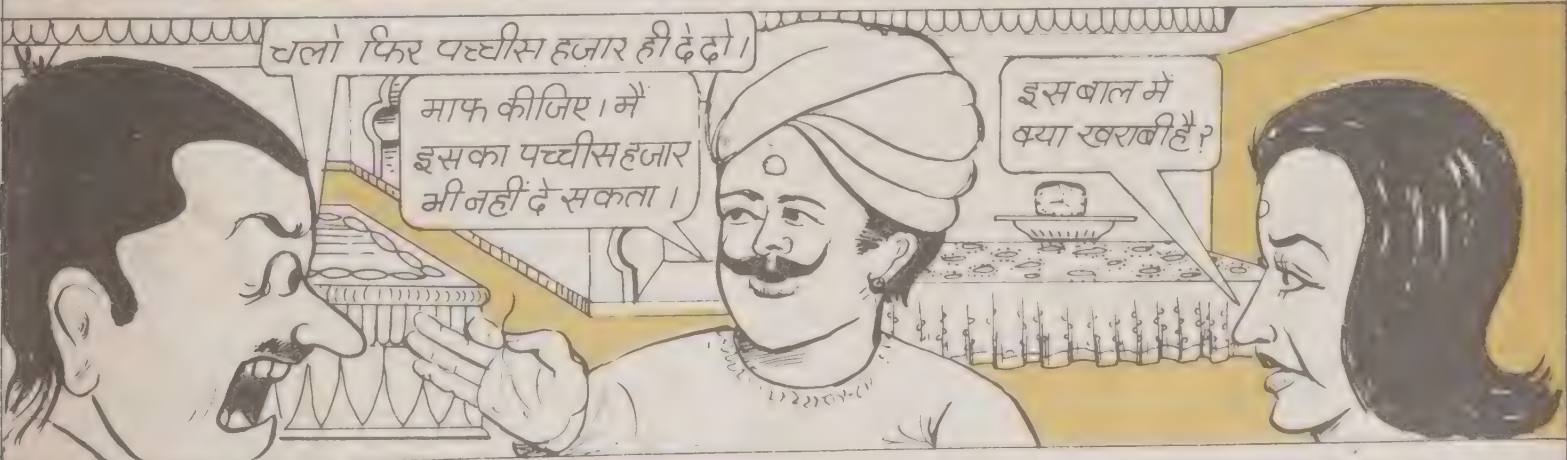 चलो फिर पच्चीस हजार ही दे दो।
माफ कीजिए। मैं
इसका पच्चीस हजार
भी नहीं दे सकता।
इस बाल में
क्या खराबी है?